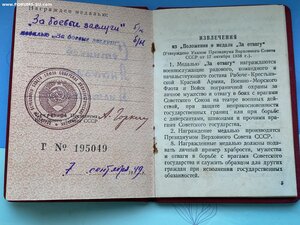 Награжден медалью:
"За боевые заслуги" б/н
медалью "За боевые заслуги"
б/н
А. Горкин
Г № 195049
7 сентября 49.
ИЗВЛЕЧЕНИЯ
из „Положения о медали „За отвагу"
(Утверждено Указом Президиума Верховного Совета СССР, от 17 октября 1938 г.)
1. Медалью „За отвагу" награждаются
военнослужащие рядового, начальствующего состава Рабоче-Крестьянской Красной Армии, Военно-Морского
Флота и Войск пограничной охраны за
личное мужество и отвагу в боях с врагами
Советского Союза на театре военных действий,
при защите неприкосновенности государственных границ или при борьбе
с диверсантами, шпионами и прочими врагами
Советского государства.
2. Награждение медалью производится
Президиумом Верховного Совета
СССР.
3. Награжденные медалью должны подавать
личный пример храбрости, мужества
и отваги в борьбе с врагами Советского
государства и служить образцом для других
граждан при исполнении государственных
обязанностей.
3